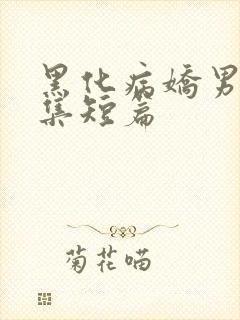 黑化病嬌男
集短篇
菊花喵